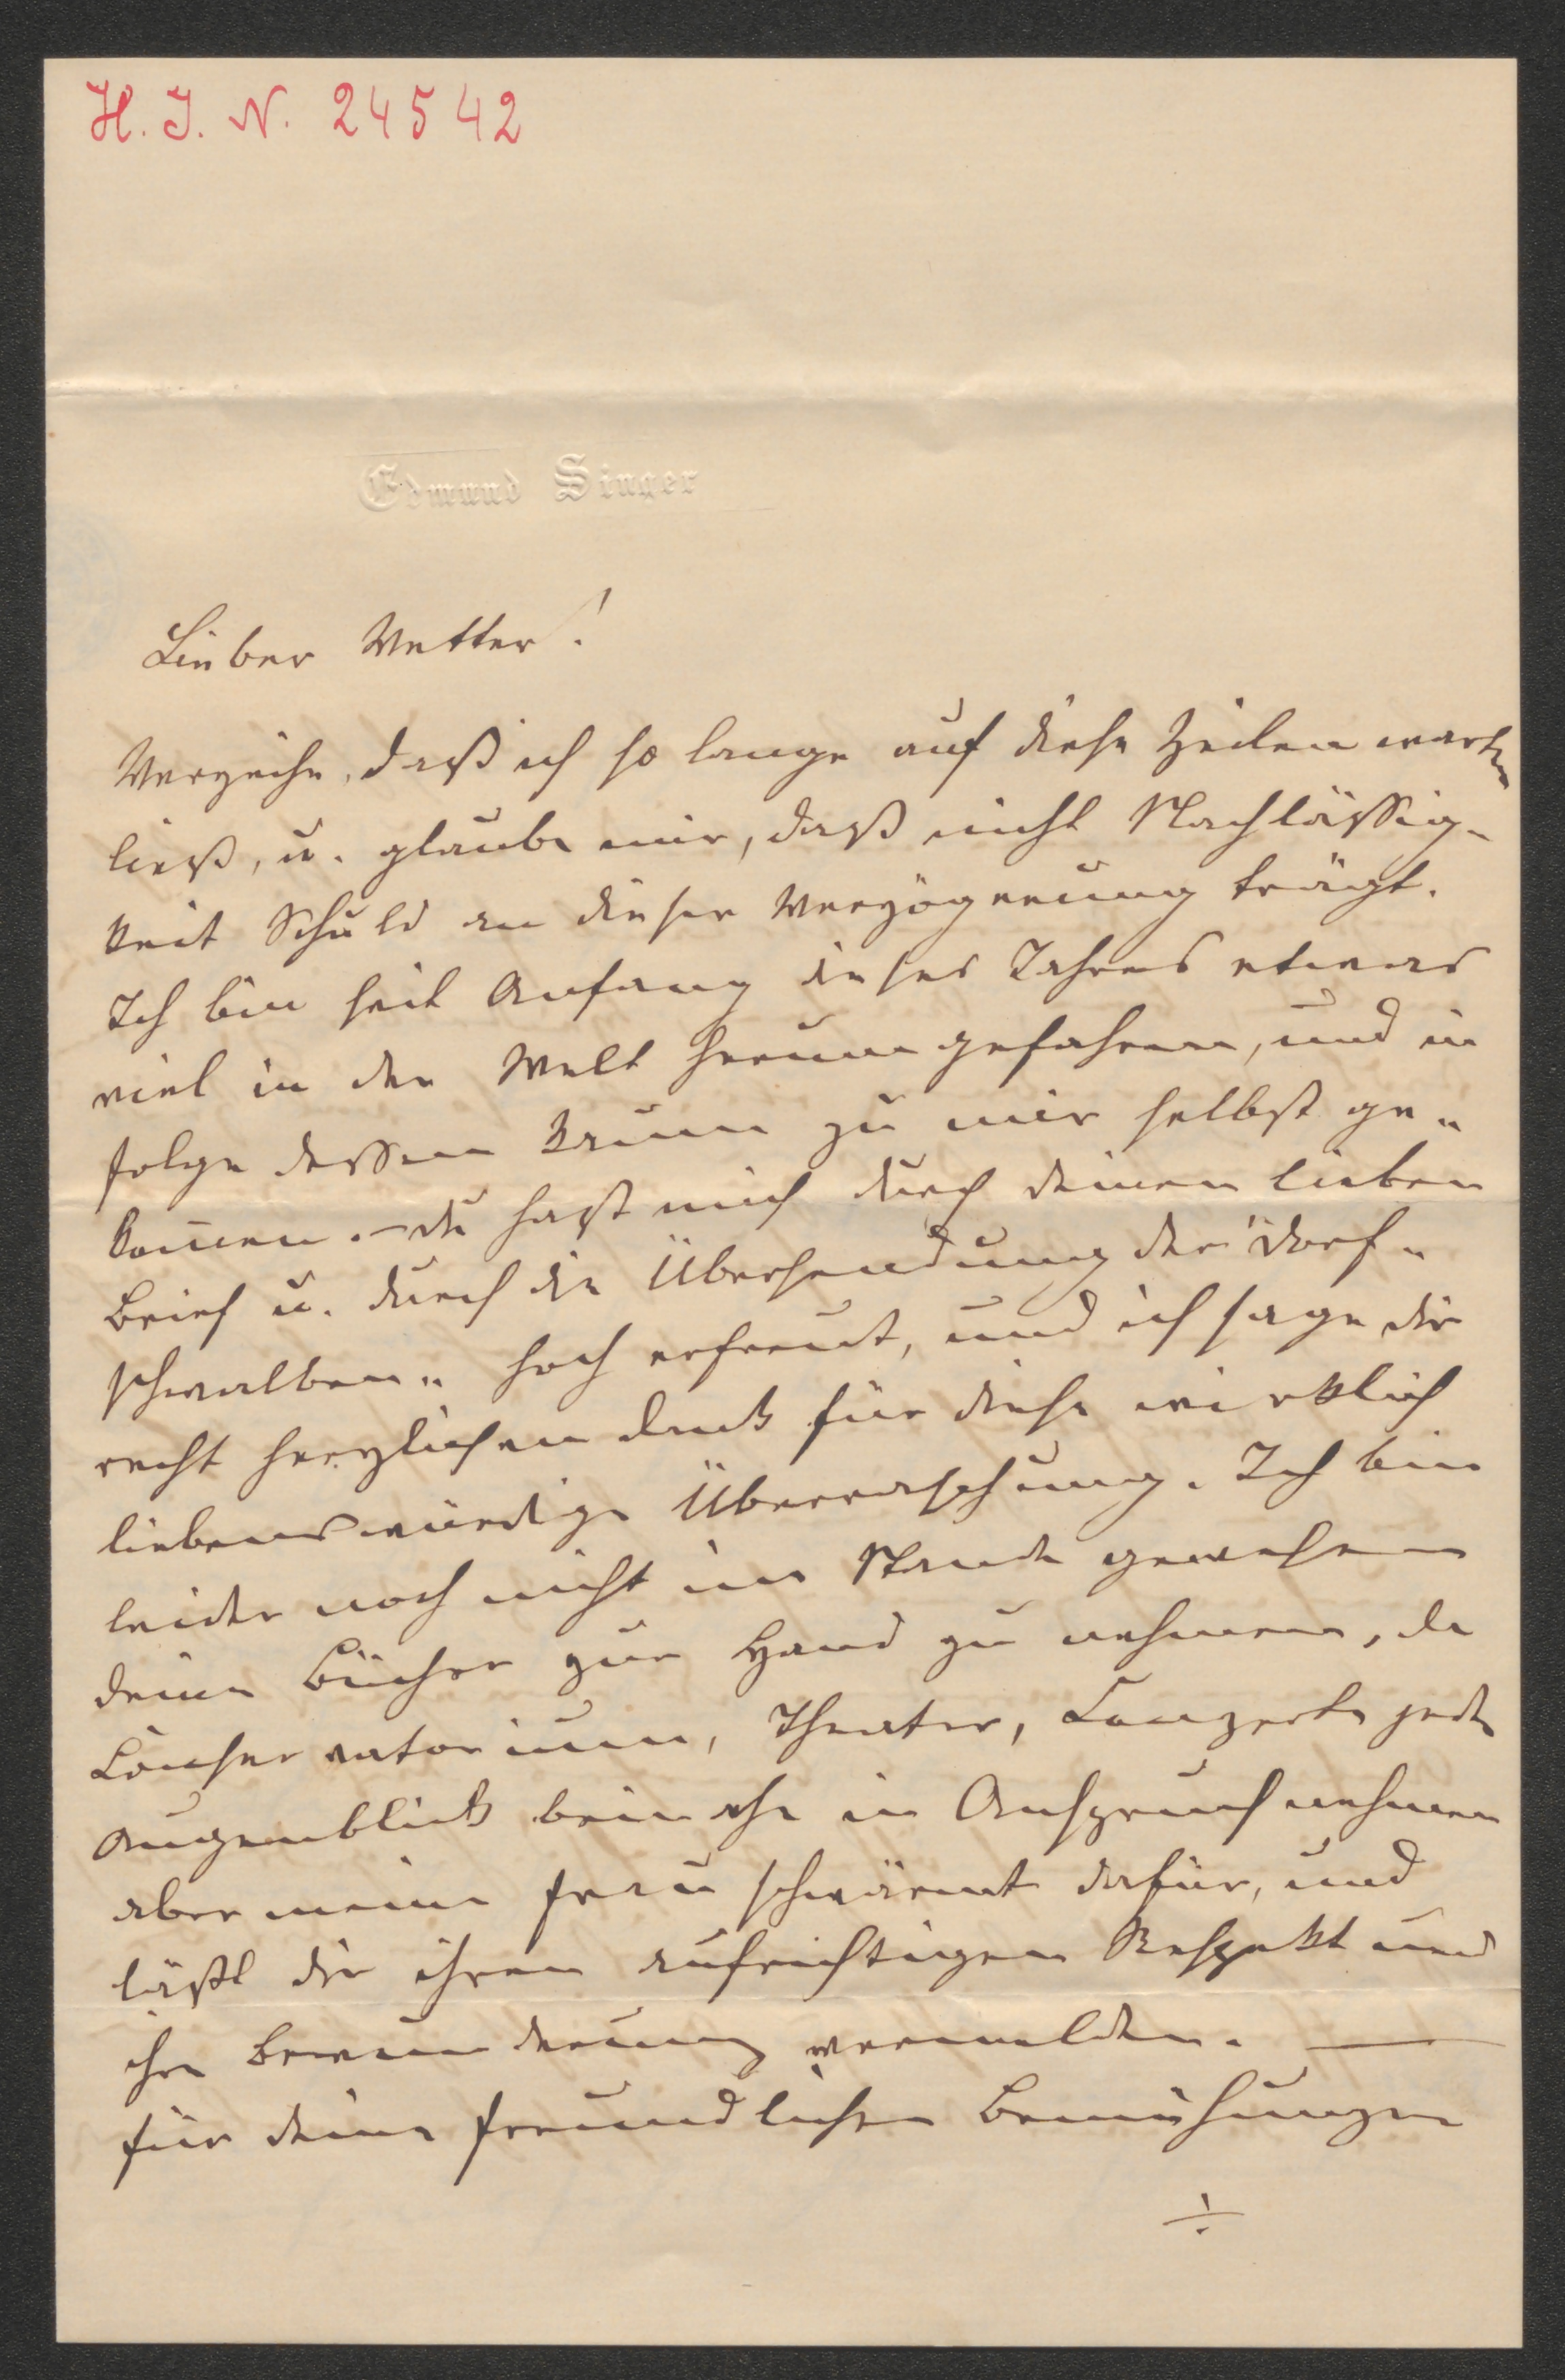 H. I. N. 24542
Edmund Singer
Lieber Vetter!
Verzeihe, daß ich so lange auf diese Zeilen warten
ließ, u. glaube mir, daß nicht Nachlässig-
keit Schuld an dieser Verzögerung trägt.
Ich bin seit Anfang dieses Jahres etwas
viel in der Welt herumgefahren, und in
folge dessen kaum zu mir selbst ge„
kom̄en. – du hast mich durch deinen lieben
Brief u. durch die Übersendung der "Dorf„
schwalben„ hoch erfreut, und ich sage dir
recht herzlichen dank für diese wirklich
liebenswürdige Überraschung. Ich bin
leider noch nicht im Stande gewesen
deine Bücher zur Hand zu nehmen, da
Conservatorium, Theater, Conzerte jeden
Augenblick beinahe in Anspruch nehmen
aber meine Frau schwärmt dafür, und
läßt dir ihren aufrichtigen Respekt und
ihre Bewunderung vermelden. —
für deine freundlichen Bemühungen
÷